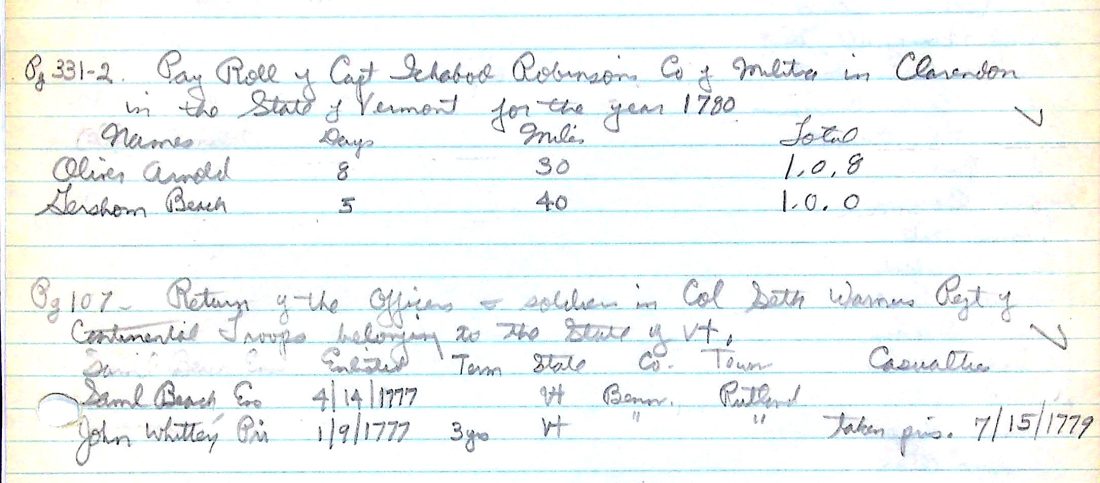 Pg 331-2. Pay Roll of Capt Ichabod Robinson's Co of Militia in Clarendon
in the State of Vermont for the year 1780
Names Days Miles Total
Oliver Arnold 8 30 1.0.8
Gershom Beach 5 40 1.0.0
Pg 107- Return of the Officers & soldiers in Col Seth Warners Regt of
Continental Troops belonging to the State of Vt.
Enlisted Term State Co. Town Casualties
Saml Beach 4/14/1777 Vt Benn. Rutland
John Whitley Pri 1/9/1777 3 yrs Vt " " taken pris. 7/15/1779